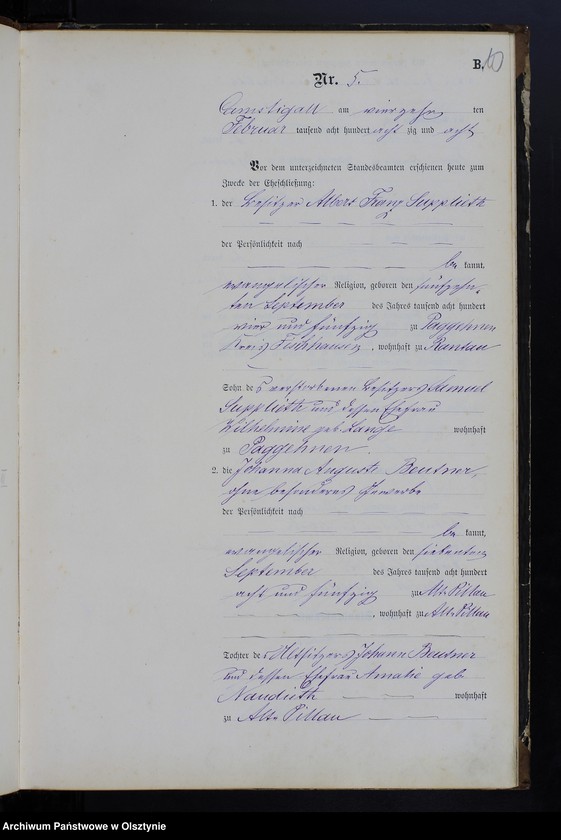 B.
10
Nr. 5.
Camstigall am vierzehn ten
Februar tausend acht hundert acht zig und acht
Vor dem unterzeichneten Standesbeamten erschienen heute zum
Zwecke der Eheschließung:
1. der Besitzer Albert Franz Supplieth
der Persönlichkeit nach
be kannt,
evangelischer Religion, geboren den fünfzehn-
ten September des Jahres tausend acht hundert
vier und fünfzig zu Paggehnen
Kreis Fischhausen, wohnhaft zu Rantau
Sohn des verstorbenen Besitzers Samuel
Supplieth und dessen Ehefrau
Wilhelmine geb. Lange wohnhaft
zu Paggehnen.
2. die Johanna Auguste Beutner,
ohne besonderes Gewerbe
der Persönlichkeit nach
be kannt,
evangelischer Religion, geboren den siebenten
September des Jahres tausend acht hundert
acht und fünfzig zu Alt Pillau
, wohnhaft zu Alt Pillau
Tochter des Altsitzers Johann Beutner
und dessen Ehefrau Amalie geb
Naudieth wohnhaft
zu Alt Pillau
Archiwum Państwowe w Olsztynie